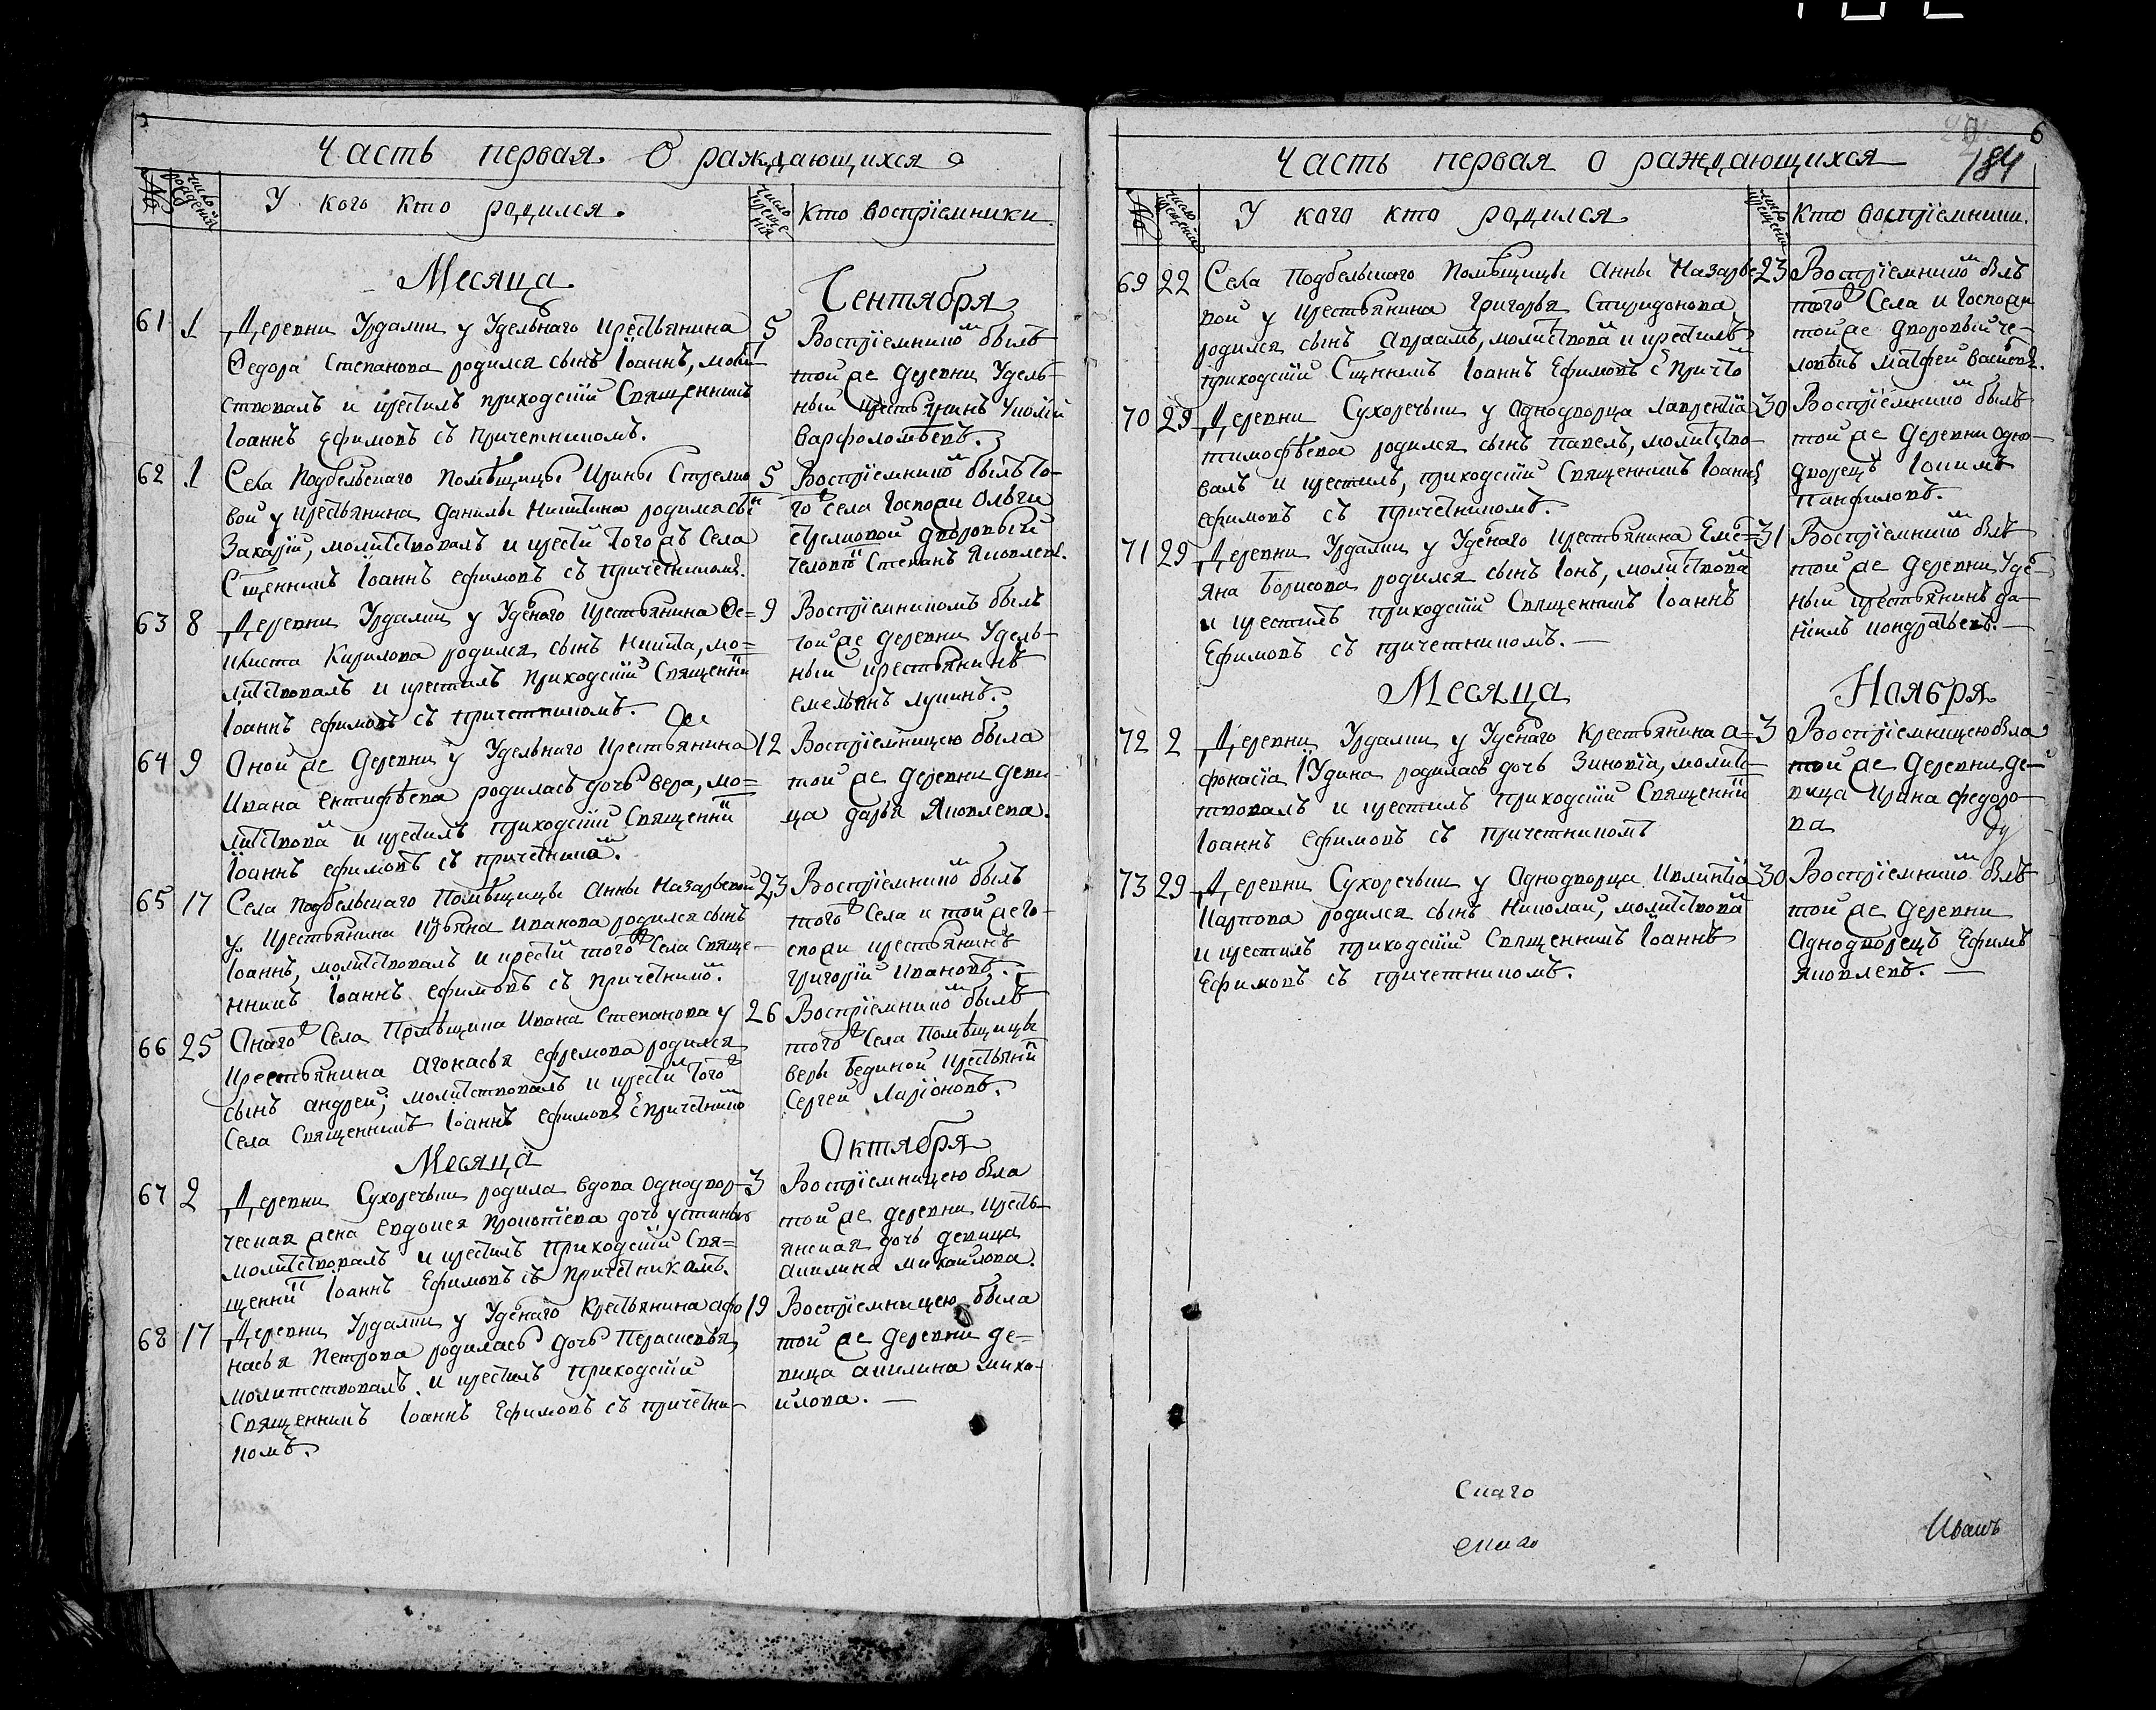 Часть первая О раждающихся
№
число рождения
У кого кто родился.
число крещения
Кто воспріемники.
Месяца
Сентября
61 1 Деревни Урдалки у Удельнаго крестьянина
Ѳедора Степанова родился сынъ Іоаннъ, молит
ствовалъ и крестилъ приходскій Священникъ
Іоаннъ Ефимовъ съ причетникомъ.
5 Воспріемникомъ былъ
той же деревни Удель-
ный крестьянинъ
варфоломѣевъ.
62 1 Села Подбельскаго Помѣщицы Ирины Стрелко
вой у крестьянина Данилы Никитина родился сынъ
Захарій, молитствовалъ и крестилъ того жъ Села
Сщенникъ Іоаннъ ефимовъ съ причетникомъ.
5 Воспріемникомъ былъ то-
го жъ села Госпожи Ольги
стрелковой дворовый
человѣкъ Степанъ Яковлевъ.
63 8 Деревни Урдалки у Уделнаго крестьянина Ѳе=
иктиста Кирилова родился сынъ Никита, мо=
литствовалъ и крестилъ Приходскій Священникъ
Іоаннъ ефимовъ съ причетникомъ.
9 Воспріемникомъ былъ
той же деревни Удель-
ный крестьянинъ
емельянъ лукинъ.
64 9 Оной же деревни у Удельнаго крестьянина
Ивана ентифѣева родилась дочь вера, мо=
литствовалъ и крестилъ приходскій Священникъ
Іоаннъ ефимовъ съ причетникомъ.
12 Воспріемницею была
той же деревни деви-
ца дарья Яковлева.
65 17 Села подбельскаго Помѣщицы Анны Назарьевой
у крестьянина Ивана родился сынъ
Іоаннъ, молитствовалъ и крестилъ того жъ Села Свяще-
нникъ Іоаннъ ефимовъ съ причетникомъ.
23 Воспріемникомъ былъ
того жъ Села и той же го-
спожи крестьянинъ
григорій Ивановъ.
66 25 Онаго жъ Села Помѣщика Ивана Степанова у
крестьянина Афонасья ефремова родился
сынъ андрей, молитствовалъ и крестилъ того жъ
Села Священникъ Іоаннъ ефимовъ съ причетникомъ
26 Воспріемникомъ былъ
того жъ Села Помѣщицы
веры Бединой крестьянинъ
Сергей Ларіоновъ.
Месяца
Октября
67 2 Деревни Сухоречьки родила вдова однодвор-
ческая жена евдокея прокопіева дочь
молитствовалъ и крестилъ Приходскій Свя=
щенникъ Іоаннъ Ефимовъ съ причетникомъ.
3 Воспріемницею была
той же деревни кресть-
янская дочь девица
акилина михаилова.
68 17 Деревни Урдалки у Уделнаго Крестьянина афо
насья Петрова родилась дочь Парасковья,
молитствовалъ и крестилъ приходскій
Священникъ Іоаннъ Ефимовъ съ причетни-
комъ.
19 Воспріемницею была
той же деревни де=
вица акилина миха-
илова. —
Часть первая о раждающихся
184
6
№
число рождения
У каго кто родился
число крещения
Кто воспріемники.
69 22 Села Подбельскаго Помѣщицы Анны Назарье
вой у крестьянина Григорья Спиридонова
родился сынъ Авраамъ, молитствовалъ и крестилъ
приходскій Сщенникъ Іоаннъ Ефимовъ съ причетомъ
23 Воспріемникомъ былъ
того жъ Села и Госпожи
той же дворовый че-
ловѣкъ Матфей васильевъ.
70 29 Деревни Сухоречьки у Однодворца лаврентіа
тимофѣева родился сынъ павелъ, молитство-
валъ и крестилъ, приходскій Священникъ Іоаннъ
ефимовъ съ причетникомъ.
30 Воспріемникомъ былъ
той же деревни одно-
дворецъ Іакимъ
панфиловъ.
71 29 Деревни Урдалки у Уделнаго крестьянина Емель=
яна борисова родился сынъ Іонъ, молитствовалъ
и крестилъ приходскій Священникъ Іоаннъ
Ефимовъ съ причетникомъ. —
31 Воспріемникомъ былъ
той же деревни Удел-
ный крестьянинъ да-
ніилъ кондратьевъ. —
Месяца
Ноября
72 2 Деревни Урдалки у Уделнаго Крестьянина а=
фонасіа Юдина родилась дочь Зиновіа, молитс-
твовалъ и крестилъ приходскій Священникъ
Іоаннъ Ефимовъ съ причетникомъ
3 Воспріемницею была
той же деревни де-
вица Ирина федоро-
ва
73 29 Деревни Сухоречьки у Однодворца
Карпова родился сынъ Николай, молитствовалъ
и крестилъ приходскій Священникъ Іоаннъ
Ефимовъ съ причетникомъ.
30 Воспріемникомъ былъ
той же деревни
Однодворецъ Ефимъ
яковлевъ. —